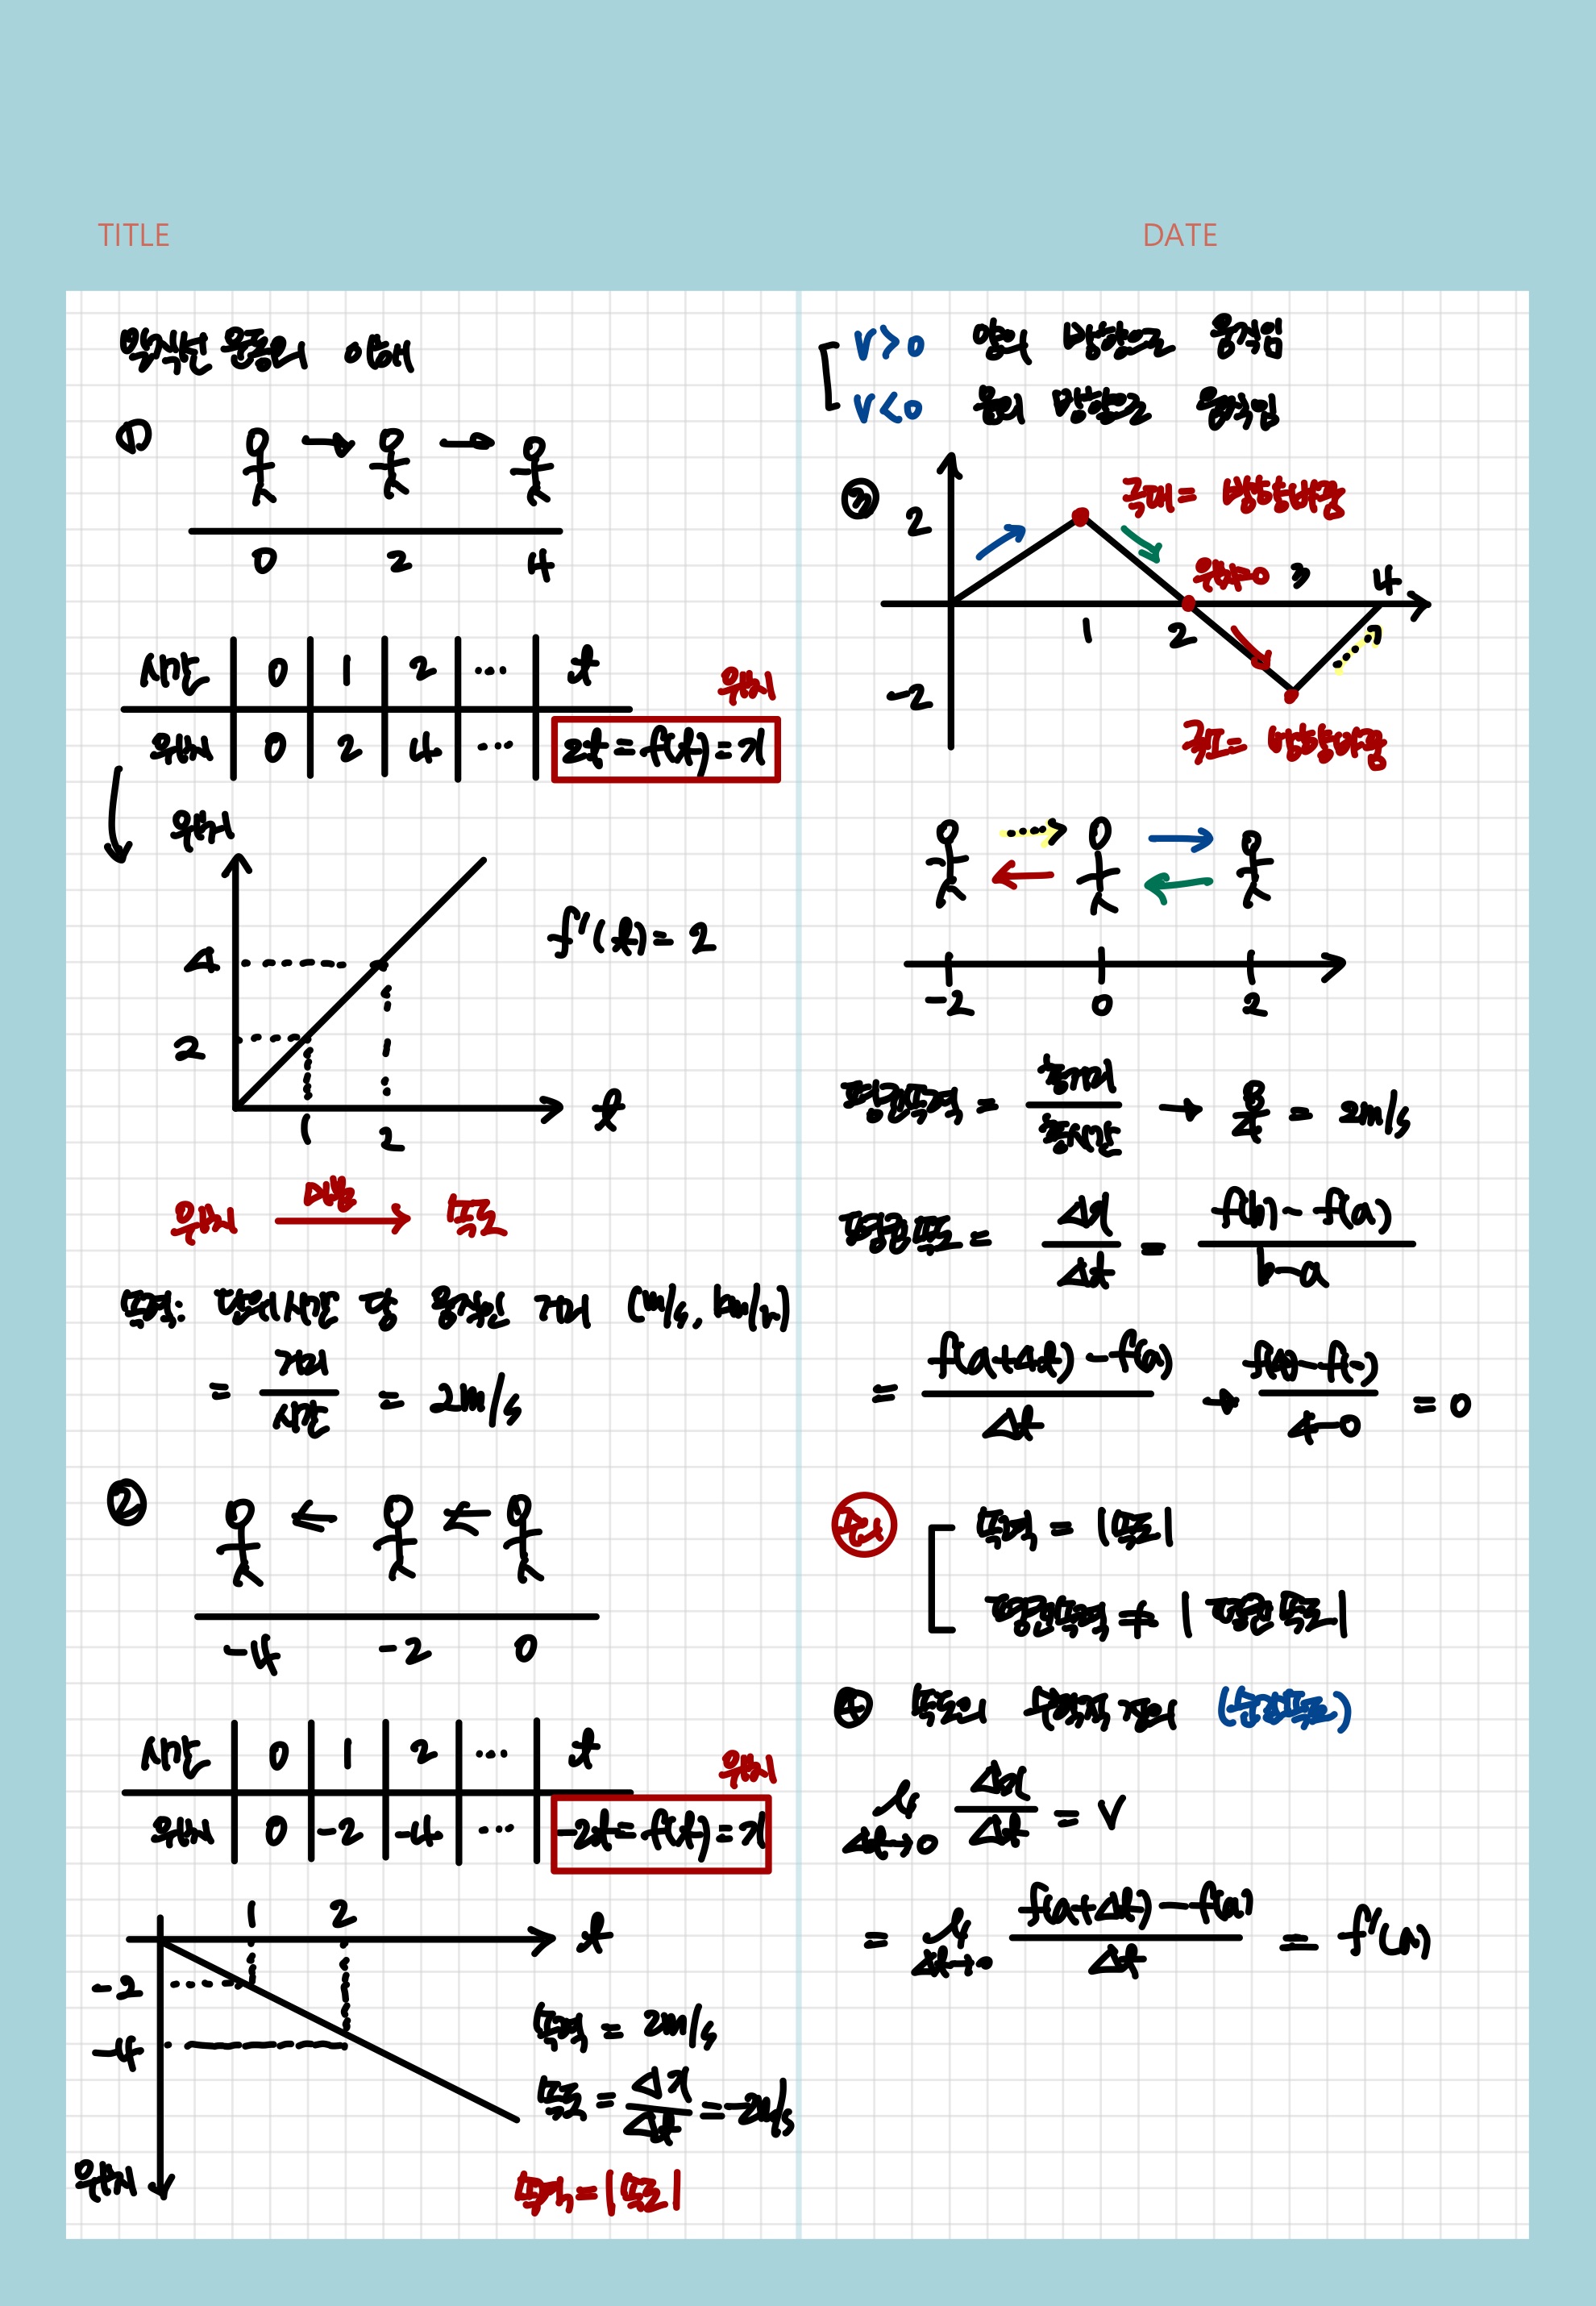 TITLE
DATE
직선 운동의 이해
①
0 2 4
시간 0 1 2 ... t
위치
위치 0 2 4 ... 2t=f(t)=x
위치
4
2
1 2 t
f'(t)=2
위치 미분 → 속도
속력: 단위시간 당 움직인 거리 (m/s, km/h)
= 거리/시간 = 2m/s
②
-4 -2 0
시간 0 1 2 ... t
위치
위치 0 -2 -4 ... -2t=f(t)=x
1 2 t
-2
-4
위치
속력 = 2m/s
속도 = Δx/Δt = -2m/s
속력=|속도|
v>0 양의 방향으로 움직임
v<0 음의 방향으로 움직임
③
2
극대= 방향바뀜
위치=0 3 4
1 2
-2
극소= 방향바뀜
-2 0 2
평균속력 = 총거리/총시간 → 8/4 = 2m/s
평균속도 = Δx/Δt = f(b)-f(a)/b-a
= f(a+Δt)-f(a)/Δt → f(4)-f(0)/4-0 = 0
속력 = |속도|
평균속력 ≠ |평균속도|
④ 속도의 수학적 정의 (순간속도)
Δt→0 Δx/Δt = v
= Δt→0 f(a+Δt)-f(a)/Δt = f'(a)